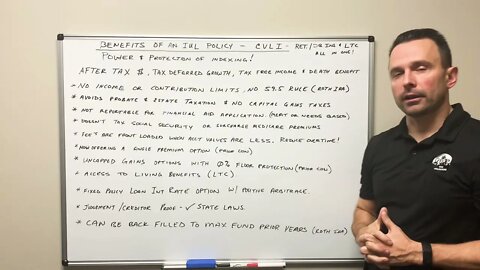 BENEFITS OF AN IUL POLICY - CVLI - RET./DB INS & LTC
ALL IN ONE!
POWER & PROTECTION OF INDEXING!
AFTER TAX $, TAX DEFERRED GROWTH, TAX FREE INCOME & DEATH BENEFIT
* NO INCOME OR CONTRIBUTION LIMITS, NO 59.5 RULE (ROTH IRA)
* AVOIDS PROBATE & ESTATE TAXATION & NO CAPITAL GAINS TAXES
* NOT REPORTABLE FOR FINANCIAL AID APPLICATION. (MERIT OR NEEDS BASED)
* DOESN'T TAX SOCIAL SECURITY OR SURCHARGE MEDICARE PREMIUMS
* FEE'S ARE FRONT LOADED WHEN ACCT VALUES ARE LESS, REDUCE OVERTIME!
* NOW OFFERING A SINGLE PREMIUM OPTION (PRIOR CON)
* UNCAPPED GAINS OPTIONS WITH 0% FLOOR PROTECTION (PRIOR CON)
* ACCESS TO LIVING BENEFITS (LTC)
* FIXED POLICY LOAN INT RATE OPTION W/ POSITIVE ARBITRAGE.
* JUDGEMENT/CREDITOR PROOF - ✓ STATE LAWS.
* CAN BE BACK FILLED TO MAX FUND PRIOR YEARS (ROTH IRA)